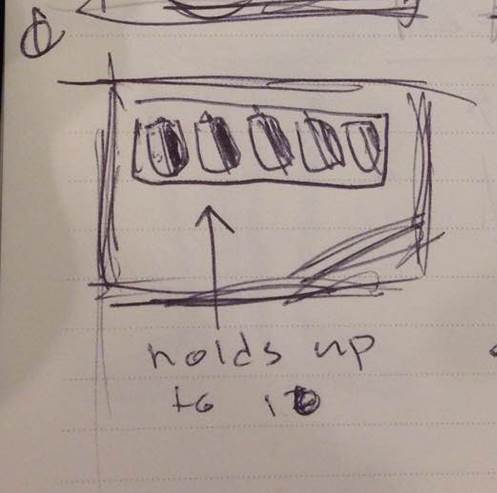 holds up
to 10